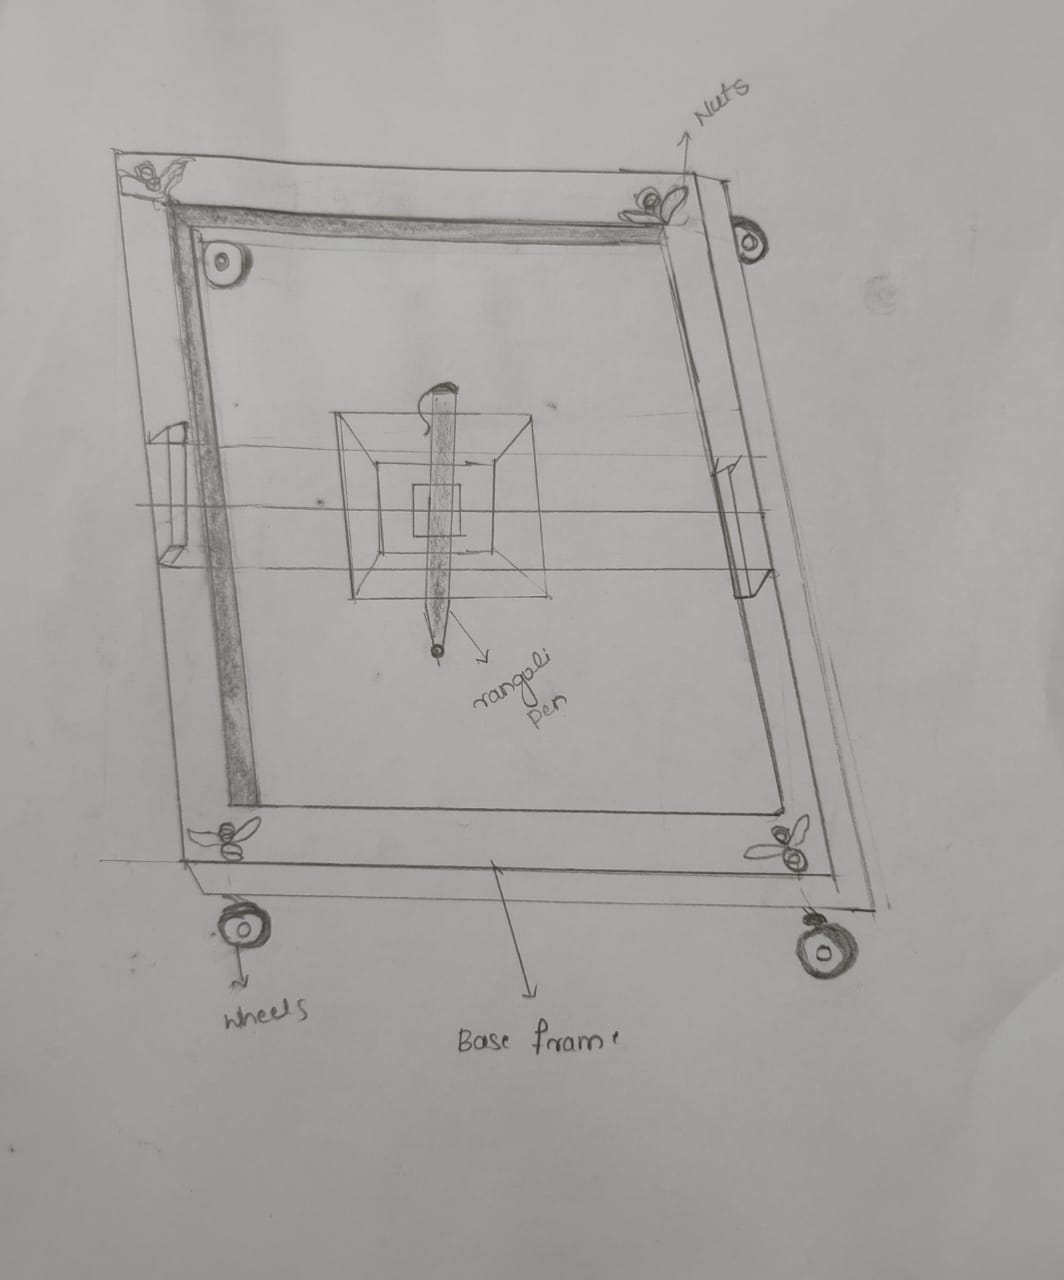 Nuts
rangoli
pen
wheels
Base frame